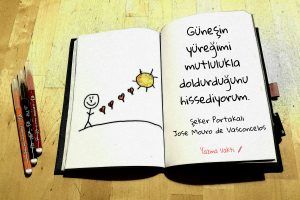 Güneşin
yüreğimi
mutlulukla
doldurduğunu
hissediyorum.
Şeker Portakalı
Jose Mauro de Vasconcelos
Yazma Vakti